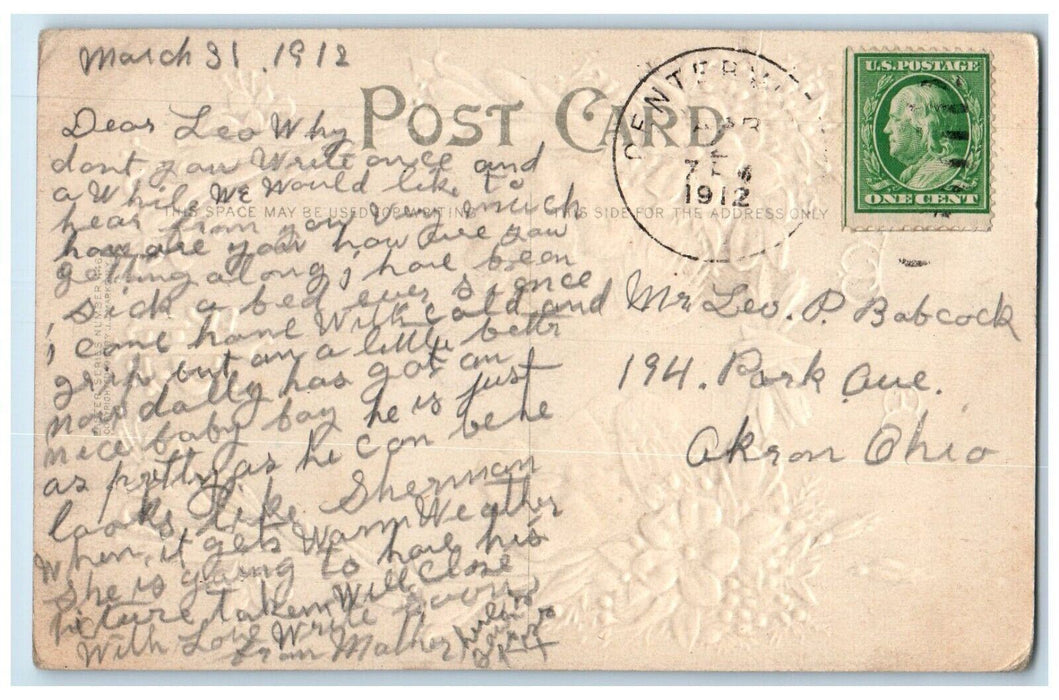 March 31, 1912
POST CARD
CENTERVI
7
1912
U.S. POSTAGE
ONE CENT
THIS SPACE MAY BE USED FOR WRITING
THIS SIDE FOR THE ADDRESS ONLY
Dear Leo Why
dont you Write once and
a While We Would like to
hear from you very much
how are you how are you
getting along i have been
sick a bed ever sience
i come home With cold and
grip but am a little bettr
now dolly has got an
nice baby boy he is just
as pretty as he can be he
looks like Sherman
When it gets Warm Weather
she is going to have his
picture taken Will close
With Love Write soon
from Mother
Mr Leo. P. Babcock
194. Park Ave.
Akron Ohio